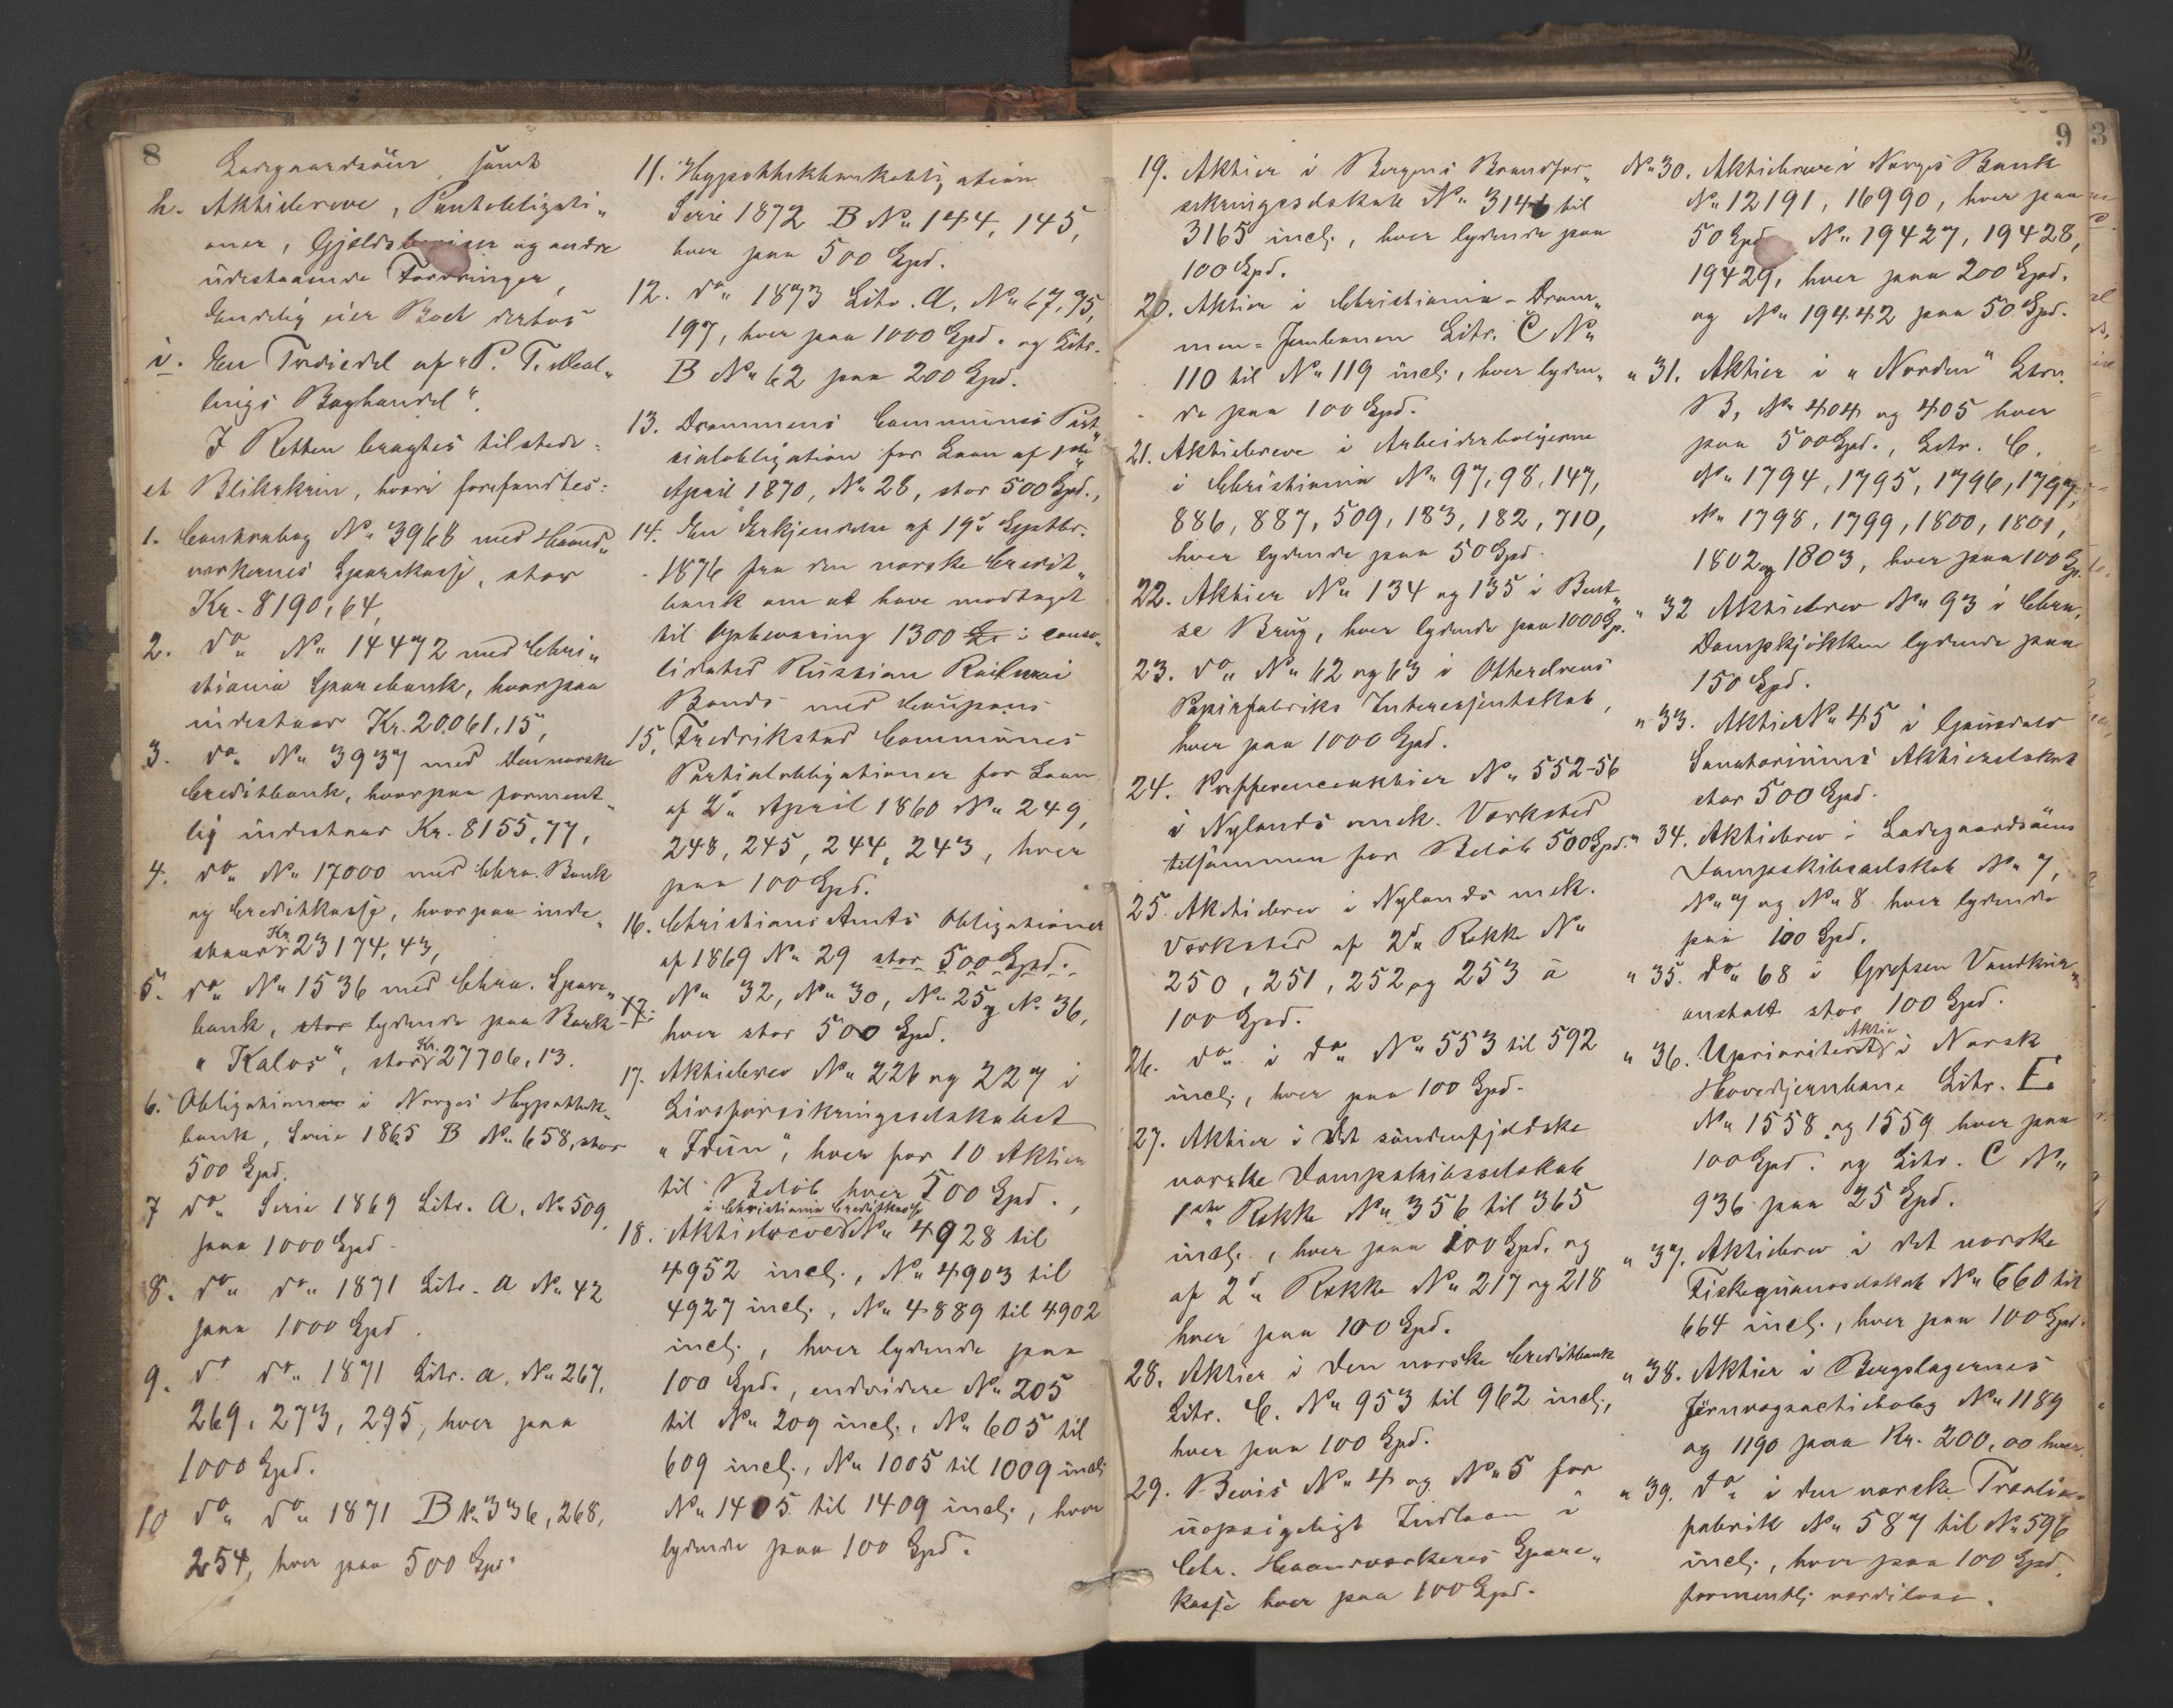 8
Ladegaardsöen, samt
h. Aktiebreve, Pantobligati„
oner, Gjeldsbeviser og andre
udestaaende Fordringer,
Endelig eier Boet dertos
i. En Trediedel af "P. T. Mal„
lings Boghandel".
I Retten bragtes tilstede
et Blikskrin, hvori forefandtes:
1. Contrabog No 3968 med Haand„
verkernes Sparekasse, stor
Kr. 8190,64,
2. do No 14472 med Chri„
stiania Sparebank, hvorpaa
indestaar Kr. 20.061,15,
3. do No 3937 med Den norske
Creditbank, hvorpaa forment„
lig indestaar Kr. 8155,77,
4. do No 17000 med Chra. Bank
og Creditkasse, hvorpaa inde„
staar Kr 23174,43,
5. do No 1536 med Chra. Spare„
bank, stor lydende paa Bark
"Kalos", stor Kr. 27706,13.
6. Obligationer i Norges Hypothek„
bank, Serie 1865 B No 658, stor
500 Spd.
7 do Serie 1869 Litr. A. No 509,
paa 1000 Spd.
8. do do 1871 Litr. A No 42
paa 1000 Spd.
9. do do 1871 Litr. A. No 267,
269, 273, 295, hver paa
1000 Spd.
10 do do 1871 B No 336, 268,
254, hver paa 500 Spd.
11. Hypothekbankobligation
Serie 1872 B No 144, 145,
hver paa 500 Spd.
12. do 1873 Litr. A. No 67, 75,
197, hver paa 1000 Spd. og Litr.
B No 62 paa 200 Spd.
13. Drammens Communes Part„
sialobligation for Laan af 1ste
April 1870, No 28, stor 500 Spd.,
14. En Erkjendelse af 19d Septbr.
1876 fra den norske Credit„
bank om at have modtaget
til Opbevaring 1300 £ i conso„
lidated Russian Railwai
Bonds med Coupons
15. Fredrikstad Communes
Partialobligationer for Laan
af 2d April 1860 No 249,
248, 245, 244, 243, hver
paa 100 Spd.
16. Christians Amts Obligationer
af 1869 No 29 stor 500 Spd.
17. No 32, No 30, No 25 og No 36,
hver stor 500 Spd.
17. Aktiebrev No 226 og 227 i
Livsforsikringsselskabet
"Idun", hver for 10 Aktier
til Beløb hver 500 Spd.,
i Christiania Creditkasse
18. Aktiebreve No 4928 til
4952 incl., No 4903 til
4927 incl., No 4889 til 4902
incl., hver lydende paa
100 Spd., endvidere No 205
til No 209 incl., No 605 til
609 incl., No 1005 til 1009 incl.
No 1405 til 1409 incl., hver
lydende paa 100 Spd.
9
19. Aktier i Bergens Brandfor„
sikringsselskab No 3146 til
3165 incl., hver lydende paa
100 Spd.
20. Aktier i Christiania-Dram„
men-Jernbanen Litr. C No
110 til No 119 incl., hver lyden„
de paa 100 Spd.
21. Aktiebreve i Arbeiderboligerne
i Christiania No 97, 98, 147,
886, 887, 509, 183, 182, 710,
hver lydende paa 50 Spd.
22. Aktier No 134 og 135 i Bent„
se Brug, hver lydende paa 1000 Sp.
23. do No 62 og 63 i Otterelvens
Papirfabriks Interessentskab,
hver paa 1000 Spd.
24. Prefferenceaktier No 552-56
i Nylands mek. Værksted
tilsammen for Beløb 500 Spd.
25. Aktiebrev i Nylands mek.
Værksted af 2d Rekke No
250, 251, 252 og 253 a
100 Spd.
26. do i do No 553 til 592
incl., hver paa 100 Spd.
27. Aktier i Det søndenfjeldske
norske Dampskibsselskab
1ste Rekke No 356 til 365
incl., hver paa 100 Spd. og
af 2d Rekke No 217 og 218
hver paa 100 Spd.
28. Aktier i Den norske Creditbank
Litr. C. No 953 til 962 incl.,
hver paa 100 Spd.
29. Bevis No 4 og No 5 for
uopsigeligt Indlaan i
Chr. Haandverkeres Spare„
kasse hver paa 100 Spd.
No 30. Aktiebreve i Norges Bank
No 12191, 16990, hver paa
50 Spd. No 19427, 19428,
19429, hver paa 200 Spd.
og No 19442 paa 50 Spd.
" 31. Aktier i "Norden" Litr.
B, No 404 og 405 hver
paa 500 Spd., Litr. C.
No 1794, 1795, 1796, 1797,
No 1798, 1799, 1800, 1801,
1802 og 1803, hver paa 100 Sp.
" 32 Aktiebrev No 93 i Chra.
Dampkjøkken lydende paa
150 Spd.
" 33. Aktie No 45 i Gausdals
Sanatoriums Aktieselskab
stor 500 Spd.
" 34. Aktiebrev i Ladegaardsöens
Dampskibsselskab No 7,
No 7 og No 8 hver lydende
paa 100 Spd.
" 35. do 68 i Grefsen Vandkur„
anstalt stor 100 Spd.
" 36. Uprioriteret Aktie i Norsk
Hovedjernbane Litr. E.
No 1558 og 1559 hver paa
100 Spd. og Litr. C No
936 paa 25 Spd.
" 37. Aktiebrev i det norske
Fiskeguanoselskab No 660 til
664 incl., hver paa 100 Spd.
" 38. Aktier i Bergslagernes
Jernvagsactiebolag No 1189
og 1190 paa Kr. 200,00 hver.
" 39. do i den norske
fabrik No 587 til No 596
incl., hver paa 100 Spd.
formentlig værdiløse.